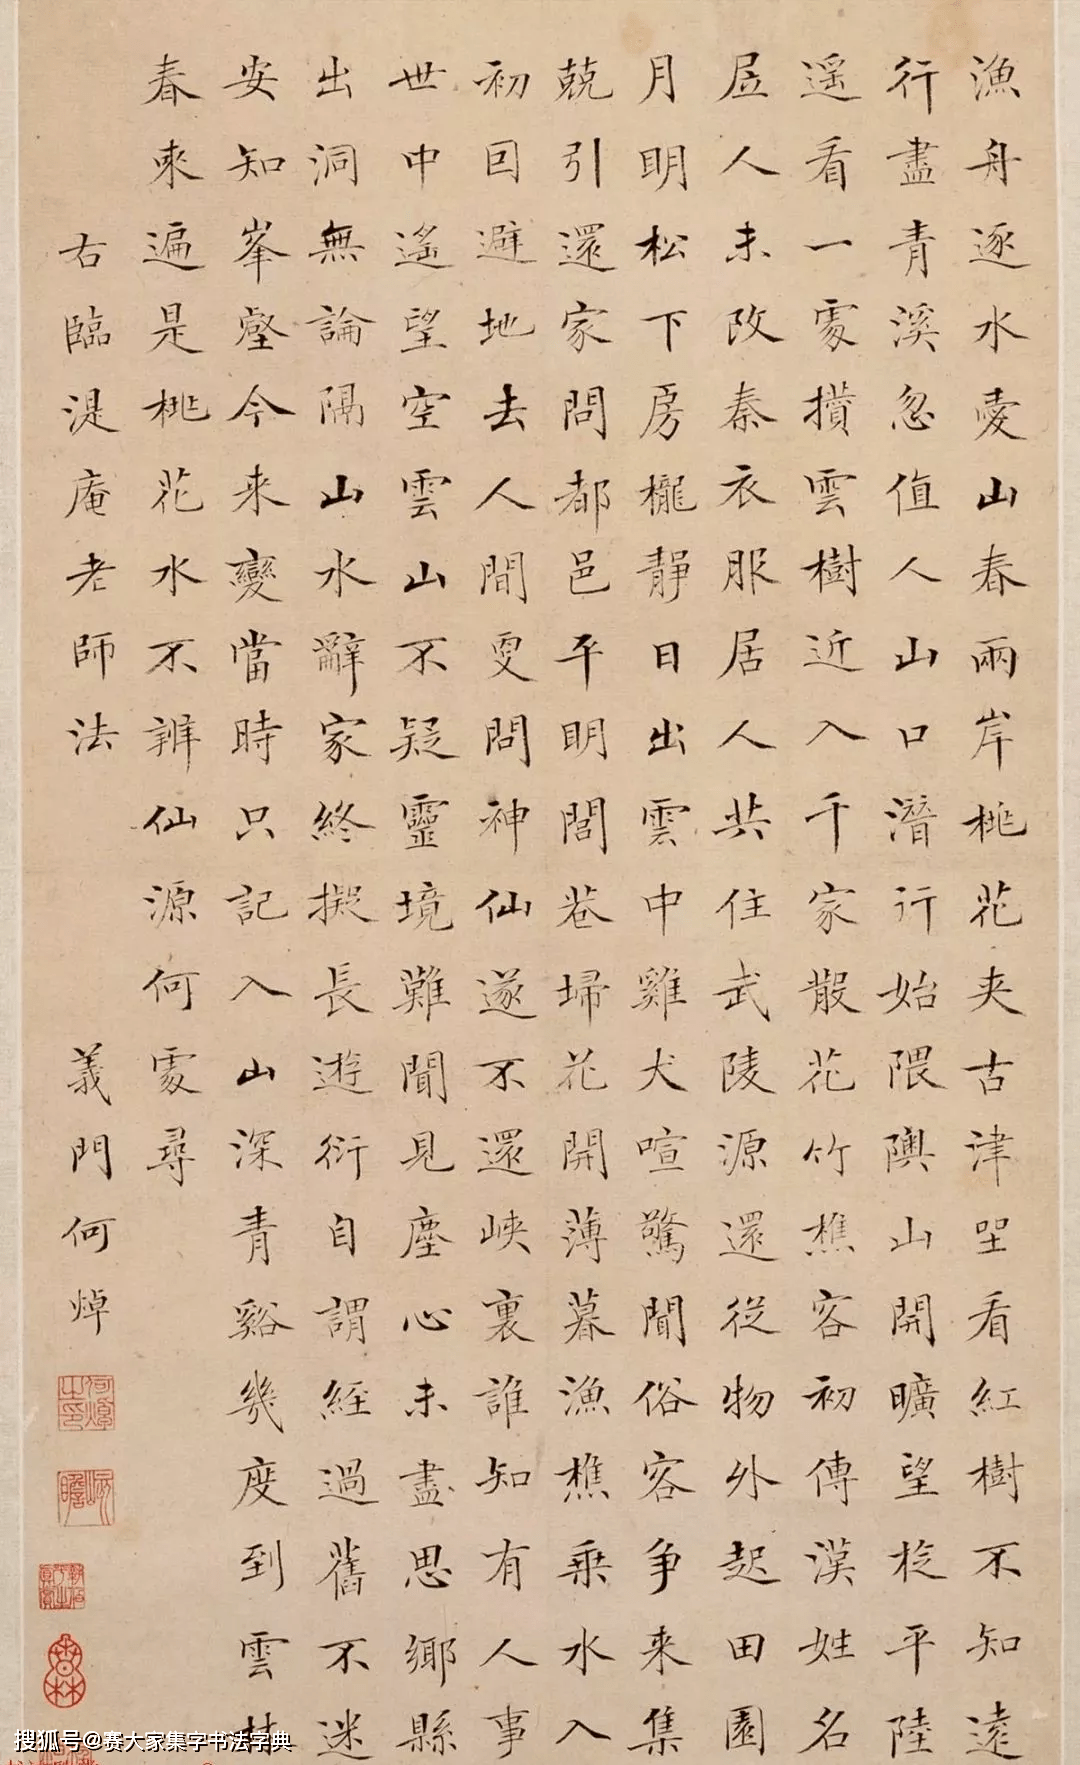 漁舟逐水愛山春兩岸桃花夾古津坐看紅樹不知遠
行盡青溪忽值人山口潛行始隈隩山開曠望旋平陸
遥看一處攢雲樹近入千家散花竹樵客初傳漢姓名
居人未改秦衣服居人共住武陵源還從物外起田園
月明松下房櫳靜日出雲中雞犬喧驚聞俗客争来集
兢引還家問都邑平明閭巷埽花開薄暮漁樵乗水入
初因避地去人間更問神仙遂不還峽裏誰知有人事
世中遙望空雲山不疑靈境難聞見塵心未盡思鄉縣
出洞無論隔山水辭家終擬長遊衍自謂經過舊不迷
安知峯壑今来變當時只記入山深青谿幾度到雲林
春來遍是桃花水不辨仙源何處尋
右臨湜庵老師法 義門何焯
何焯之印
屺瞻
搜狐号@赛大家集字书法字典